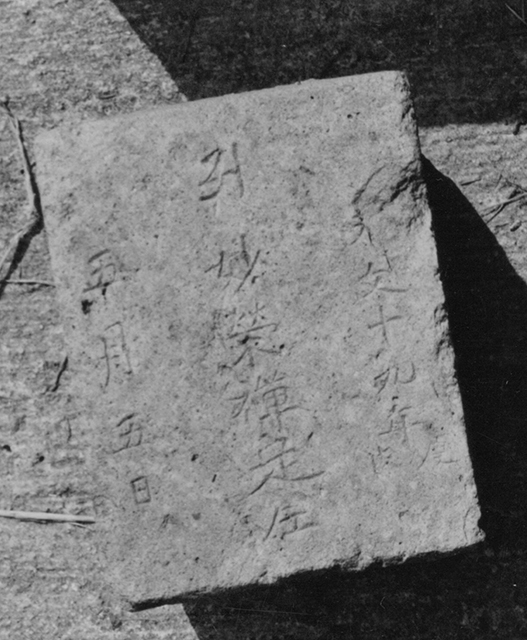 天文十九年
妙榮禅定尼
五月五日